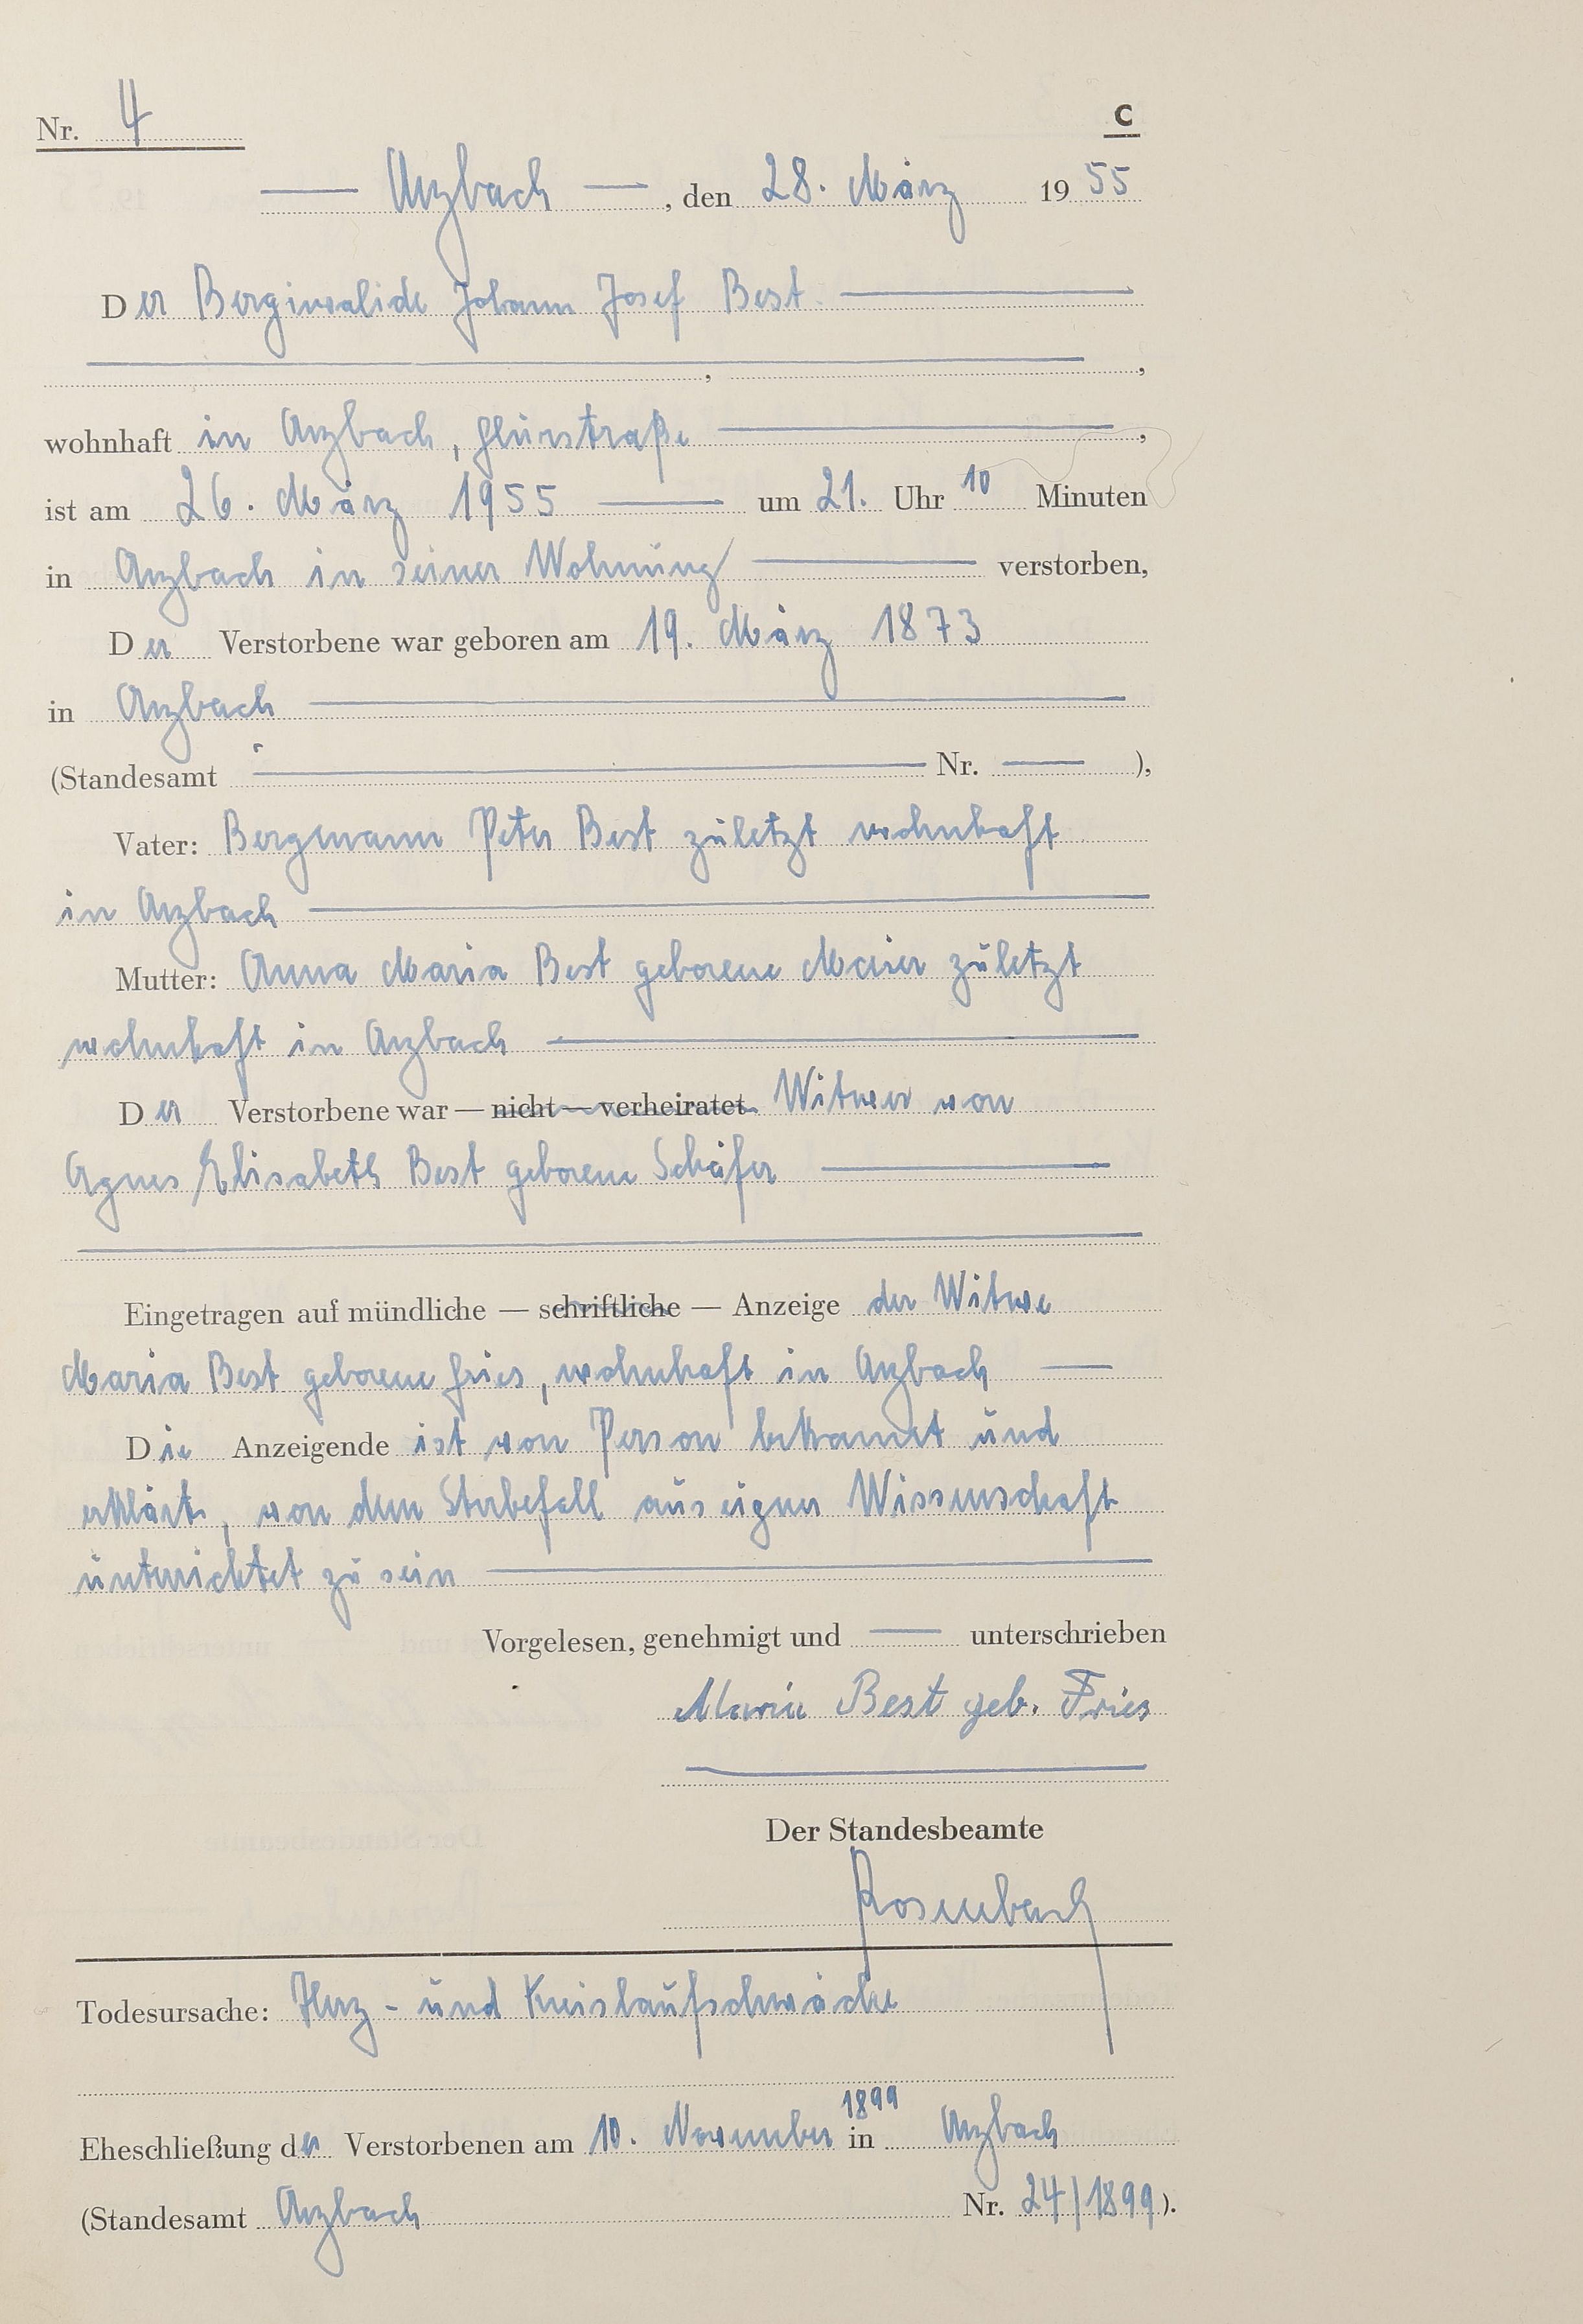 Nr. 4
C
— Arzbach —, den 28. März 1955
Der Berginvalide Johann Josef Best —
, ,
wohnhaft in Arzbach, Flurstraße —,
ist am 26. März 1955 — um 21. Uhr 10 Minuten
in Arzbach in seiner Wohnung — verstorben,
Der Verstorbene war geboren am 19. März 1873
in Arzbach —
(Standesamt — Nr. — ),
Vater: Bergmann Peter Best zuletzt wohnhaft
in Arzbach —
Mutter: Anna Maria Best geborene zuletzt
wohnhaft in Arzbach —
Der Verstorbene war — nicht — verheiratet. Witwer von
Agnes Elisabeth Best geborene Schäfer —
Eingetragen auf mündliche — schriftliche — Anzeige der Witwe
Maria Best geborene Fries, wohnhaft in Arzbach —
Die Anzeigende ist von Person bekannt und
erklärte, von dem Sterbefall aus eigner Wissenschaft
unterrichtet zu sein —
Vorgelesen, genehmigt und — unterschrieben
Maria Best geb. Fries
Der Standesbeamte
Rosenbach
Todesursache: Herz- und Kreislaufschwäche
Eheschließung des Verstorbenen am 10. November 1899 in Arzbach
(Standesamt Arzbach Nr. 24/1899).